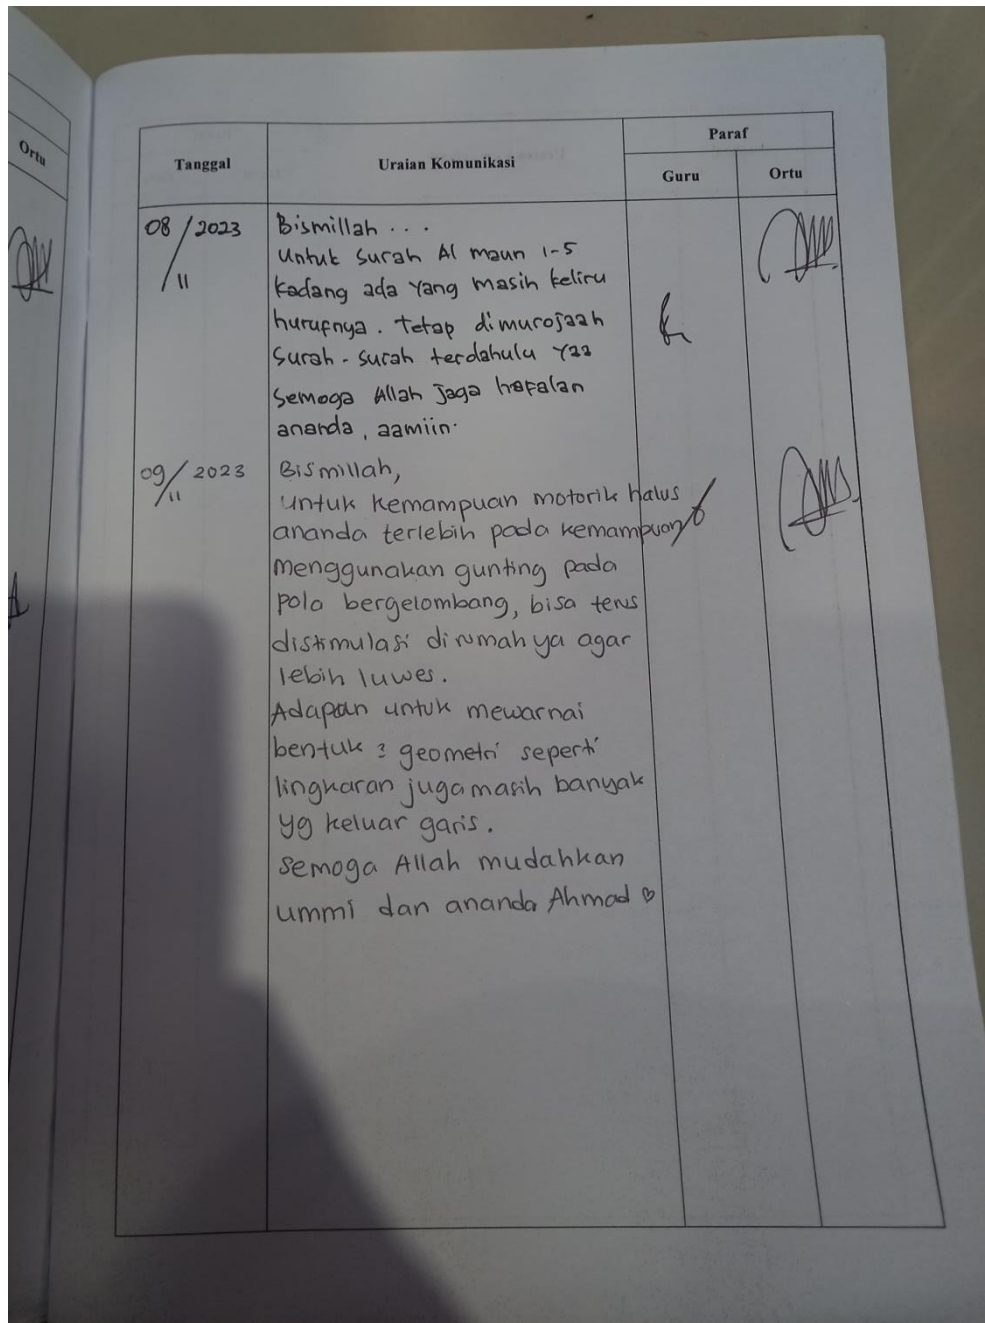 Ortu
Tanggal
Uraian Komunikasi
Paraf
Guru
Ortu
08/11/2023
Bismillah ...
Untuk Surah Al maun 1-5
kadang ada yang masih keliru
hurufnya. tetap dimurojaah
Surah-surah terdahulu Yaa
Semoga Allah Jaga hafalan
ananda, aamiin.
09/11/2023
Bismillah,
untuk kemampuan motorik halus
ananda terlebih pada kemampuan
menggunakan gunting pada
pola bergelombang, bisa terus
distimulasi dirumah ya agar
lebih luwes.
Adapan untuk mewarnai
bentuk2 geometri seperti
lingkaran juga masih banyak
yg keluar garis.
Semoga Allah mudahkan
ummi dan ananda Ahmad ♡